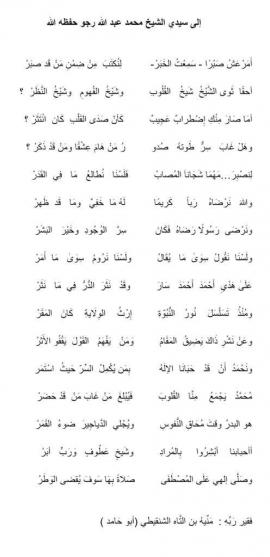 إلى سيدي الشيخ محمد عبد الله رجو حفظه الله
أمَرْعَشُ صَبْرًا - سَمِعْتُ الخَبَرْ- لِنُكْتَبَ مِنْ ضِمْنِ مَنْ قَد صَبَرْ
أحقًا ثَوى الشَّيْخُ شَيخُ القُلُوبِ وشَيْخُ الفُهومِ وشَيْخُ النَّظَرْ ؟
أمَا صَارَ مِنْكِ إضْطِرابٌ عَجيبٌ كَأنْ صَدَى القَلْبِ كَانَ انْتَثَرْ ؟
وهَلْ غَابَ سِرٌّ طَوتهُ صُدو رُ مَنْ هَامَ عِشْقًا ومَنْ قَدْ ذَكَرْ ؟
لِنَصبِر...مَهْمَا شَجَانَا المُصابُ فَلَسْنَا نُطَالِعُ مَا فِي القَدَرْ
والله نَرْضَاهُ رَباً كَرِيمًا لَهُ مَا خَفِيْ ومَا قَد ظَهَرْ
ونَرْضَى رَسُولًا رَضَاهُ فَكَانَ سِرَّ الوُجُودِ وخَيْرَ البَشَرْ
ولَسْنَا نَقُولُ سِوَى مَا يُقَالُ ولَسْنَا نَرُومُ سِوَى مَا أَمَرْ
عَلَى هَدْيِ أَحْمَدَ أَحْمَدَ سَارَ وقَدْ نَثَرَ الدُّرَّ فِي مَا نَثَرْ
ومُنْذُ تَسَلْسَلَ نُورُ النُّبُوَّة إِرْثُ الوِلايَةِ كَانَ المَقَرّْ
وعَنْ نَشْرِ ذَاكَ يَضِيقُ المَقَامُ ومَنْ يَفْهَمِ القَوْلَ يَقْفُو الأَثَرْ
ونَحْمَدُ أَنْ قَدْ حَبَانَا الإلَهُ بِمَن يُكْمِلُ السِّرَّ حَيثُ اسْتَمَر
مُحَمَّدُ يَجْمَعُ مِنَّا القُلُوبَ فَيُبْلِغُ مَنْ غَابَ مَنْ قَد حَضَرْ
هو البدرُ وقت مُحَاقِ النُّفُوسِ ويُجْلِي الدَّيَاجِيرَ ضوءُ القَمَرْ
أحبابنا أَبْشِرُوا بِالمُرادِ وشَيخٍ عَطُوفٍ وَرَبٍّ أبَرْ
وصَلَّى إلهي عَلَى المُصْطَفَى صَلاةً بِهَا سَوفَ يُقضى الوَطَرْ
فقير رَبِّه : مَنِّيهْ بن التَّاه الشنقيطي (أبو حامد )